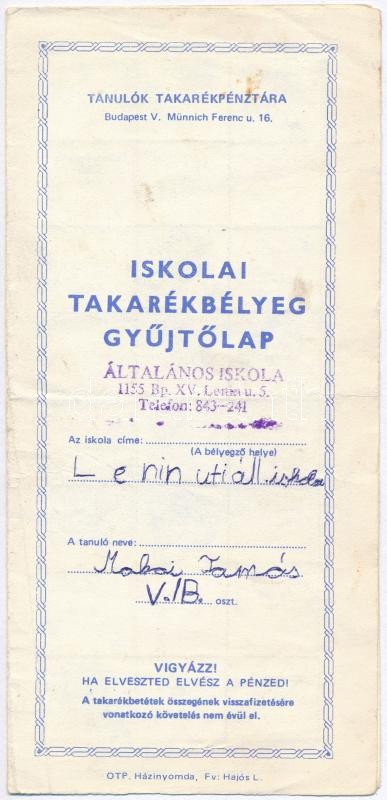 TANULÓK TAKARÉKPÉNZTÁRA
Budapest V. Münnich Ferenc u. 16.
ISKOLAI
TAKARÉKBÉLYEG
GYŰJTŐLAP
ÁLTALÁNOS ISKOLA
1155 Bp. XV. Lenin u. 5.
Telefon: 843-241
Az iskola címe:
(A bélyegző helye)
Lenin uti ált. iskola
A tanuló neve:
Makai Tamás
V./B. oszt.
VIGYÁZZ!
HA ELVESZTED ELVÉSZ A PÉNZED!
A takarékbetétek összegének visszafizetésére
vonatkozó követelés nem évül el.
OTP. Házinyomda, Fv: Hajós L.